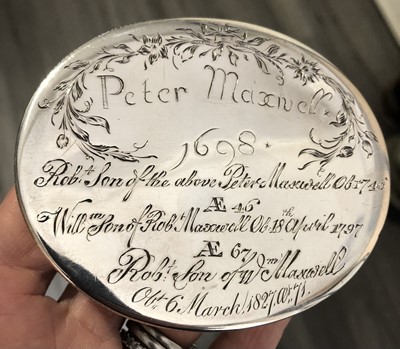 Peter Maxwell.
1698.
Robt. Son of the above Peter Maxwell Ob 1745
Æ 46
Willm Son of Robt Maxwell Ob 18th April 1797
Æ 67
Robt. Son of Wm Maxwell
Obt. 6 March, 1827, Æt. 71.